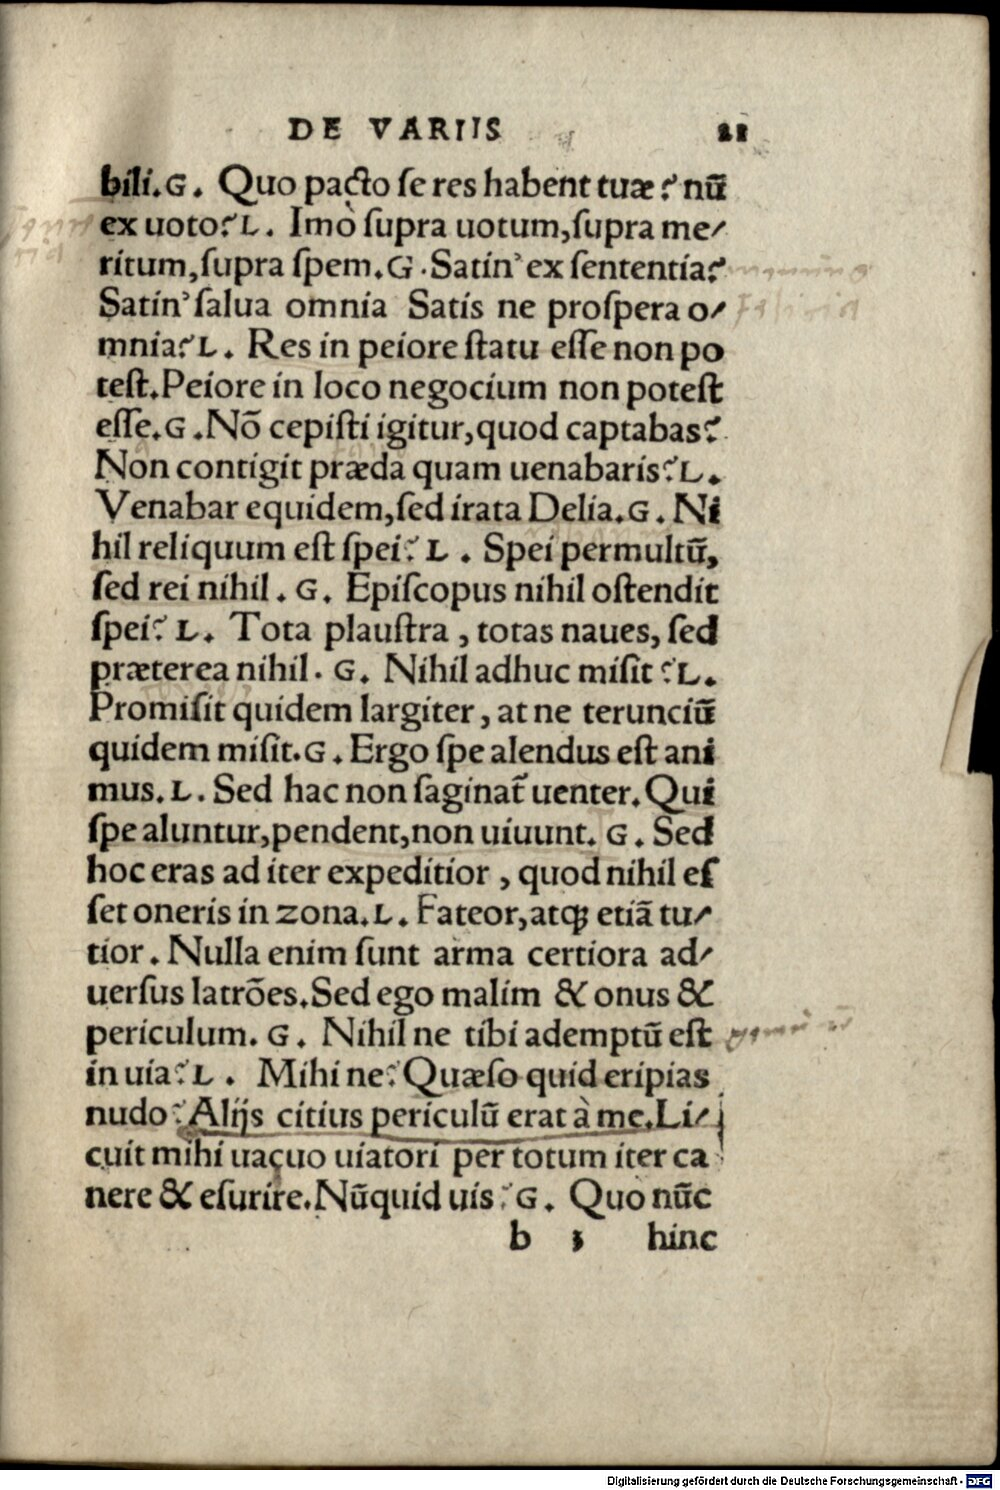 DE VARIIS 21
bili.G. Quo pacto ſe res habent tuæ? nũ
ex uoto? L. Imò ſupra uotum,ſupra me-
ritum,ſupra ſpem.G. Satin' ex ſententia?
Satin' ſalua omnia Satis ne proſpera o-
mnia? L. Res in peiore ſtatu eſſe non po
teſt.Peiore in loco negocium non poteſt
eſſe.G.Nõ cepiſti igitur,quod captabas?
Non contigit præda quam uenabaris? L.
Venabar equidem,ſed irata Delia.G. Ni
hil reliquum eſt ſpei? L. Spei permultũ,
ſed rei nihil. G. Epiſcopus nihil oſtendit
ſpei? L. Tota plauſtra, totas naues, ſed
præterea nihil. G. Nihil adhuc miſit? L.
Promiſit quidem largiter, at ne terunciũ
quidem miſit.G. Ergo ſpe alendus eſt ani
mus. L. Sed hac non ſaginat̃ uenter.Qui
ſpe aluntur,pendent,non uiuunt. G. Sed
hoc eras ad iter expeditior, quod nihil eſ
ſet oneris in zona.L. Fateor,atqꝫ etiã tu-
tior. Nulla enim ſunt arma certiora ad-
uerſus latrões.Sed ego malim & onus &
periculum. G. Nihil ne tibi ademptũ eſt
in uia? L. Mihi ne? Quæſo quid eripias
nudo? Alijs citius periculũ erat à me.Li-
cuit mihi uacuo uiatori per totum iter ca
nere & eſurire.Nũquid uis? G. Quò nũc
b 3 hinc
Digitalisierung gefördert durch die Deutsche Forschungsgemeinschaft - DFG